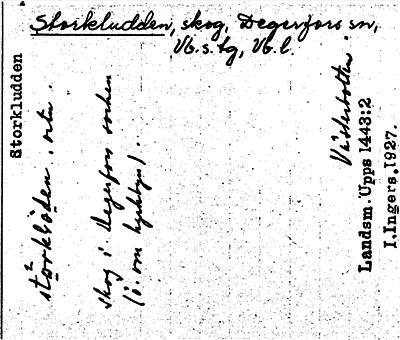 Storkludden, skog, Degerfors sn,
Vb. s. tg, Vb. l.
Storkludden
Skog i Degerfors socken
(ö. om kyrkbyn).
Västerbotten.
Landsm. Upps 1443:2
I. Ingers. 1927.